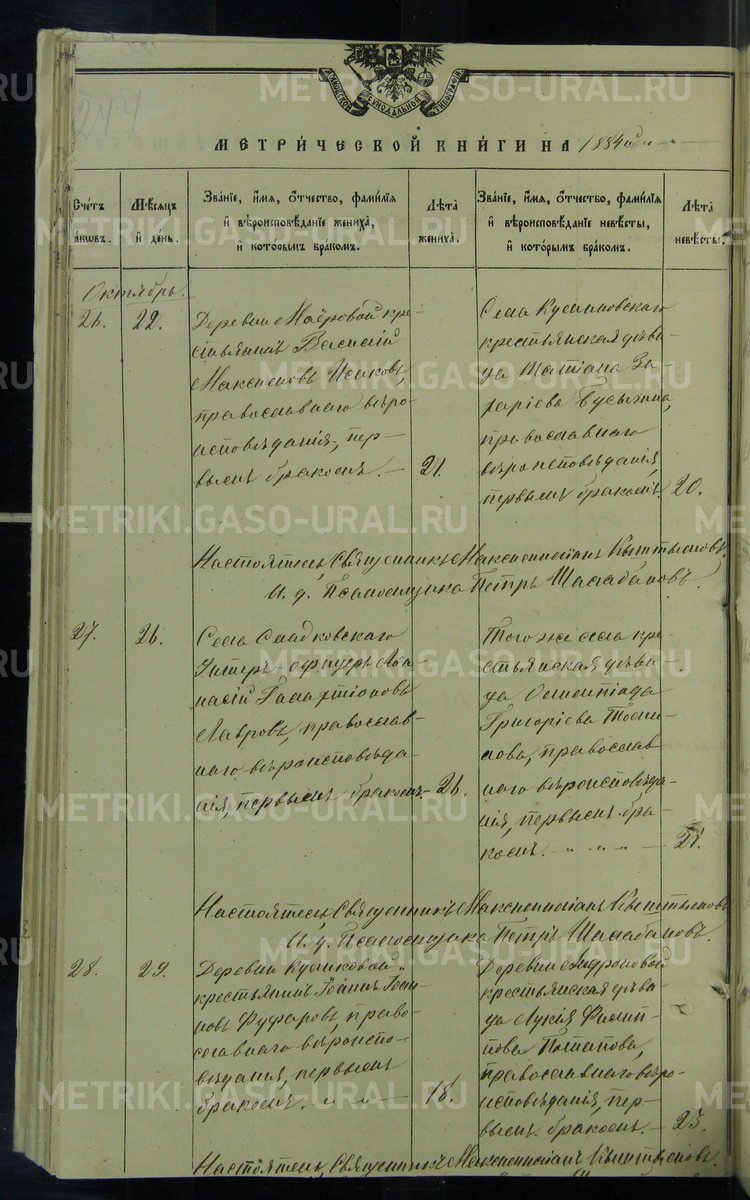 244
СѴНОДАЛЬНОЙ
МЕТРИ́ЧЕСКОЙ КНИ́ГИ НА 1884 й
Сче́тъ
а́кѡвъ.
Мѣ́сѧцъ
и҆ де́нь.
Зва́нїе, и҆́мѧ, ѻ҆́тчество, фами́лїѧ
и҆ вѣроисповѣ́данїе жениха̀,
и҆ кото́рымъ бра́комъ.
Лѣ́та
жениха̀.
Зва́нїе, и҆́мѧ, ѻ҆́тчество, фами́лїѧ
и҆ вѣроисповѣ́данїе невѣ́сты,
и҆ кото́рымъ бра́комъ.
Лѣ́та
невѣ́сты.
Октябрь.
26. 22.
Деревни Маёровой кре-
стьянинъ Василій
Максимовъ Исаковъ,
православнаго вѣро-
исповѣданія, пер-
вымъ бракомъ. — 21.
Села
крестьянская дѣви-
ца Татіана За-
харіева
православнаго
вѣроисповѣданія,
первымъ бракомъ. 20.
Настоятель Священникъ Максимиліанъ
И. д. Псаломщика Петръ
27. 26.
Села Сладковскаго
Унтеръ-офицеръ Аѳа-
насій Галактіоновъ
Лавровъ, православ-
наго вѣроисповѣда-
нія, первымъ бракомъ. 26.
Того же села кре-
стьянская дѣви-
ца Олимпіада
Григоріева
православ
наго вѣроисповѣда-
нія, первымъ бра-
комъ. — 21.
Настоятель Священникъ Максимиліанъ
И. д. Псаломщика Петръ
28. 29.
Деревни Куликовой
крестьянинъ Іоаннъ Іоси-
мовъ Фуфаровъ, право-
славнаго вѣроиспо-
вѣданія, первымъ
бракомъ. — 18.
Деревни Андроновой
крестьянская дѣви-
ца Лукія Филип-
пова Потапова,
православнаго вѣро-
исповѣданія, пер-
вымъ бракомъ. — 23.
Настоятель Священникъ Максимиліанъ
METRIKI.GASO-URAL.RU